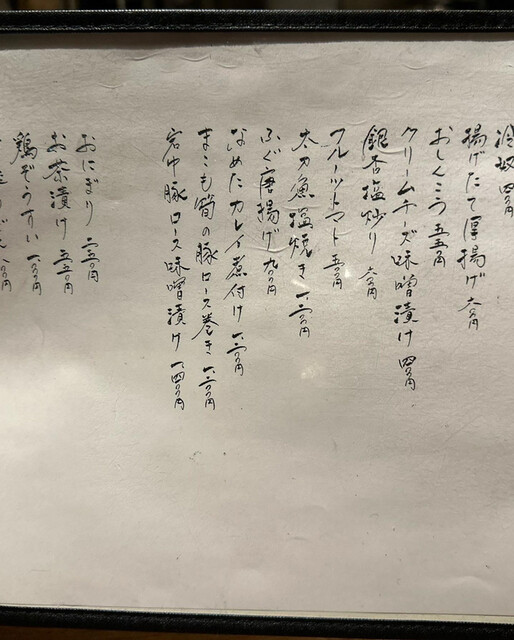 冷奴 四〇〇円
揚げたて厚揚げ 六〇〇円
おしんこう 五五〇円
クリームチーズ味噌漬け 四〇〇円
銀杏塩炒り 六〇〇円
フルーツトマト 五〇〇円
太刀魚塩焼き 一、二〇〇円
ふぐ唐揚げ 九〇〇円
なめたカレイ煮付け 一、二〇〇円
まこも筍の豚ロース巻き 一、二〇〇円
岩中豚ロース味噌漬け 一、四〇〇円
おにぎり 二五〇円
お茶漬け 五五〇円
鶏ぞうすい 一、〇〇〇円